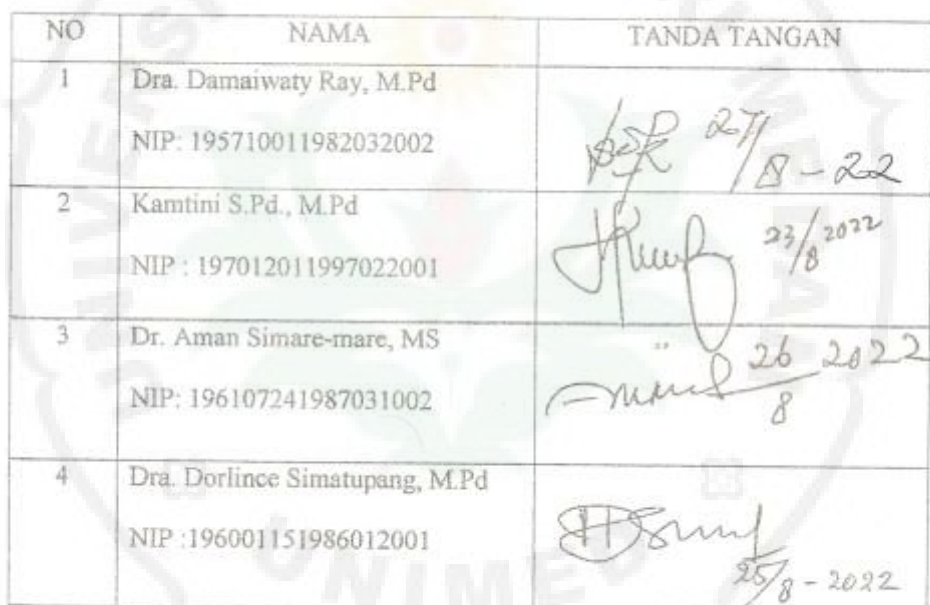 NO NAMA TANDA TANGAN
1 Dra. Damaiwaty Ray, M.Pd
NIP: 195710011982032002
27/8-22
2 Kamtini S.Pd., M.Pd
NIP : 197012011997022001
23/8 2022
3 Dr. Aman Simare-mare, MS
NIP: 196107241987031002
26/8 2022
4 Dra. Dorlince Simatupang, M.Pd
NIP :196001151986012001
25/8-2022
UNIMED